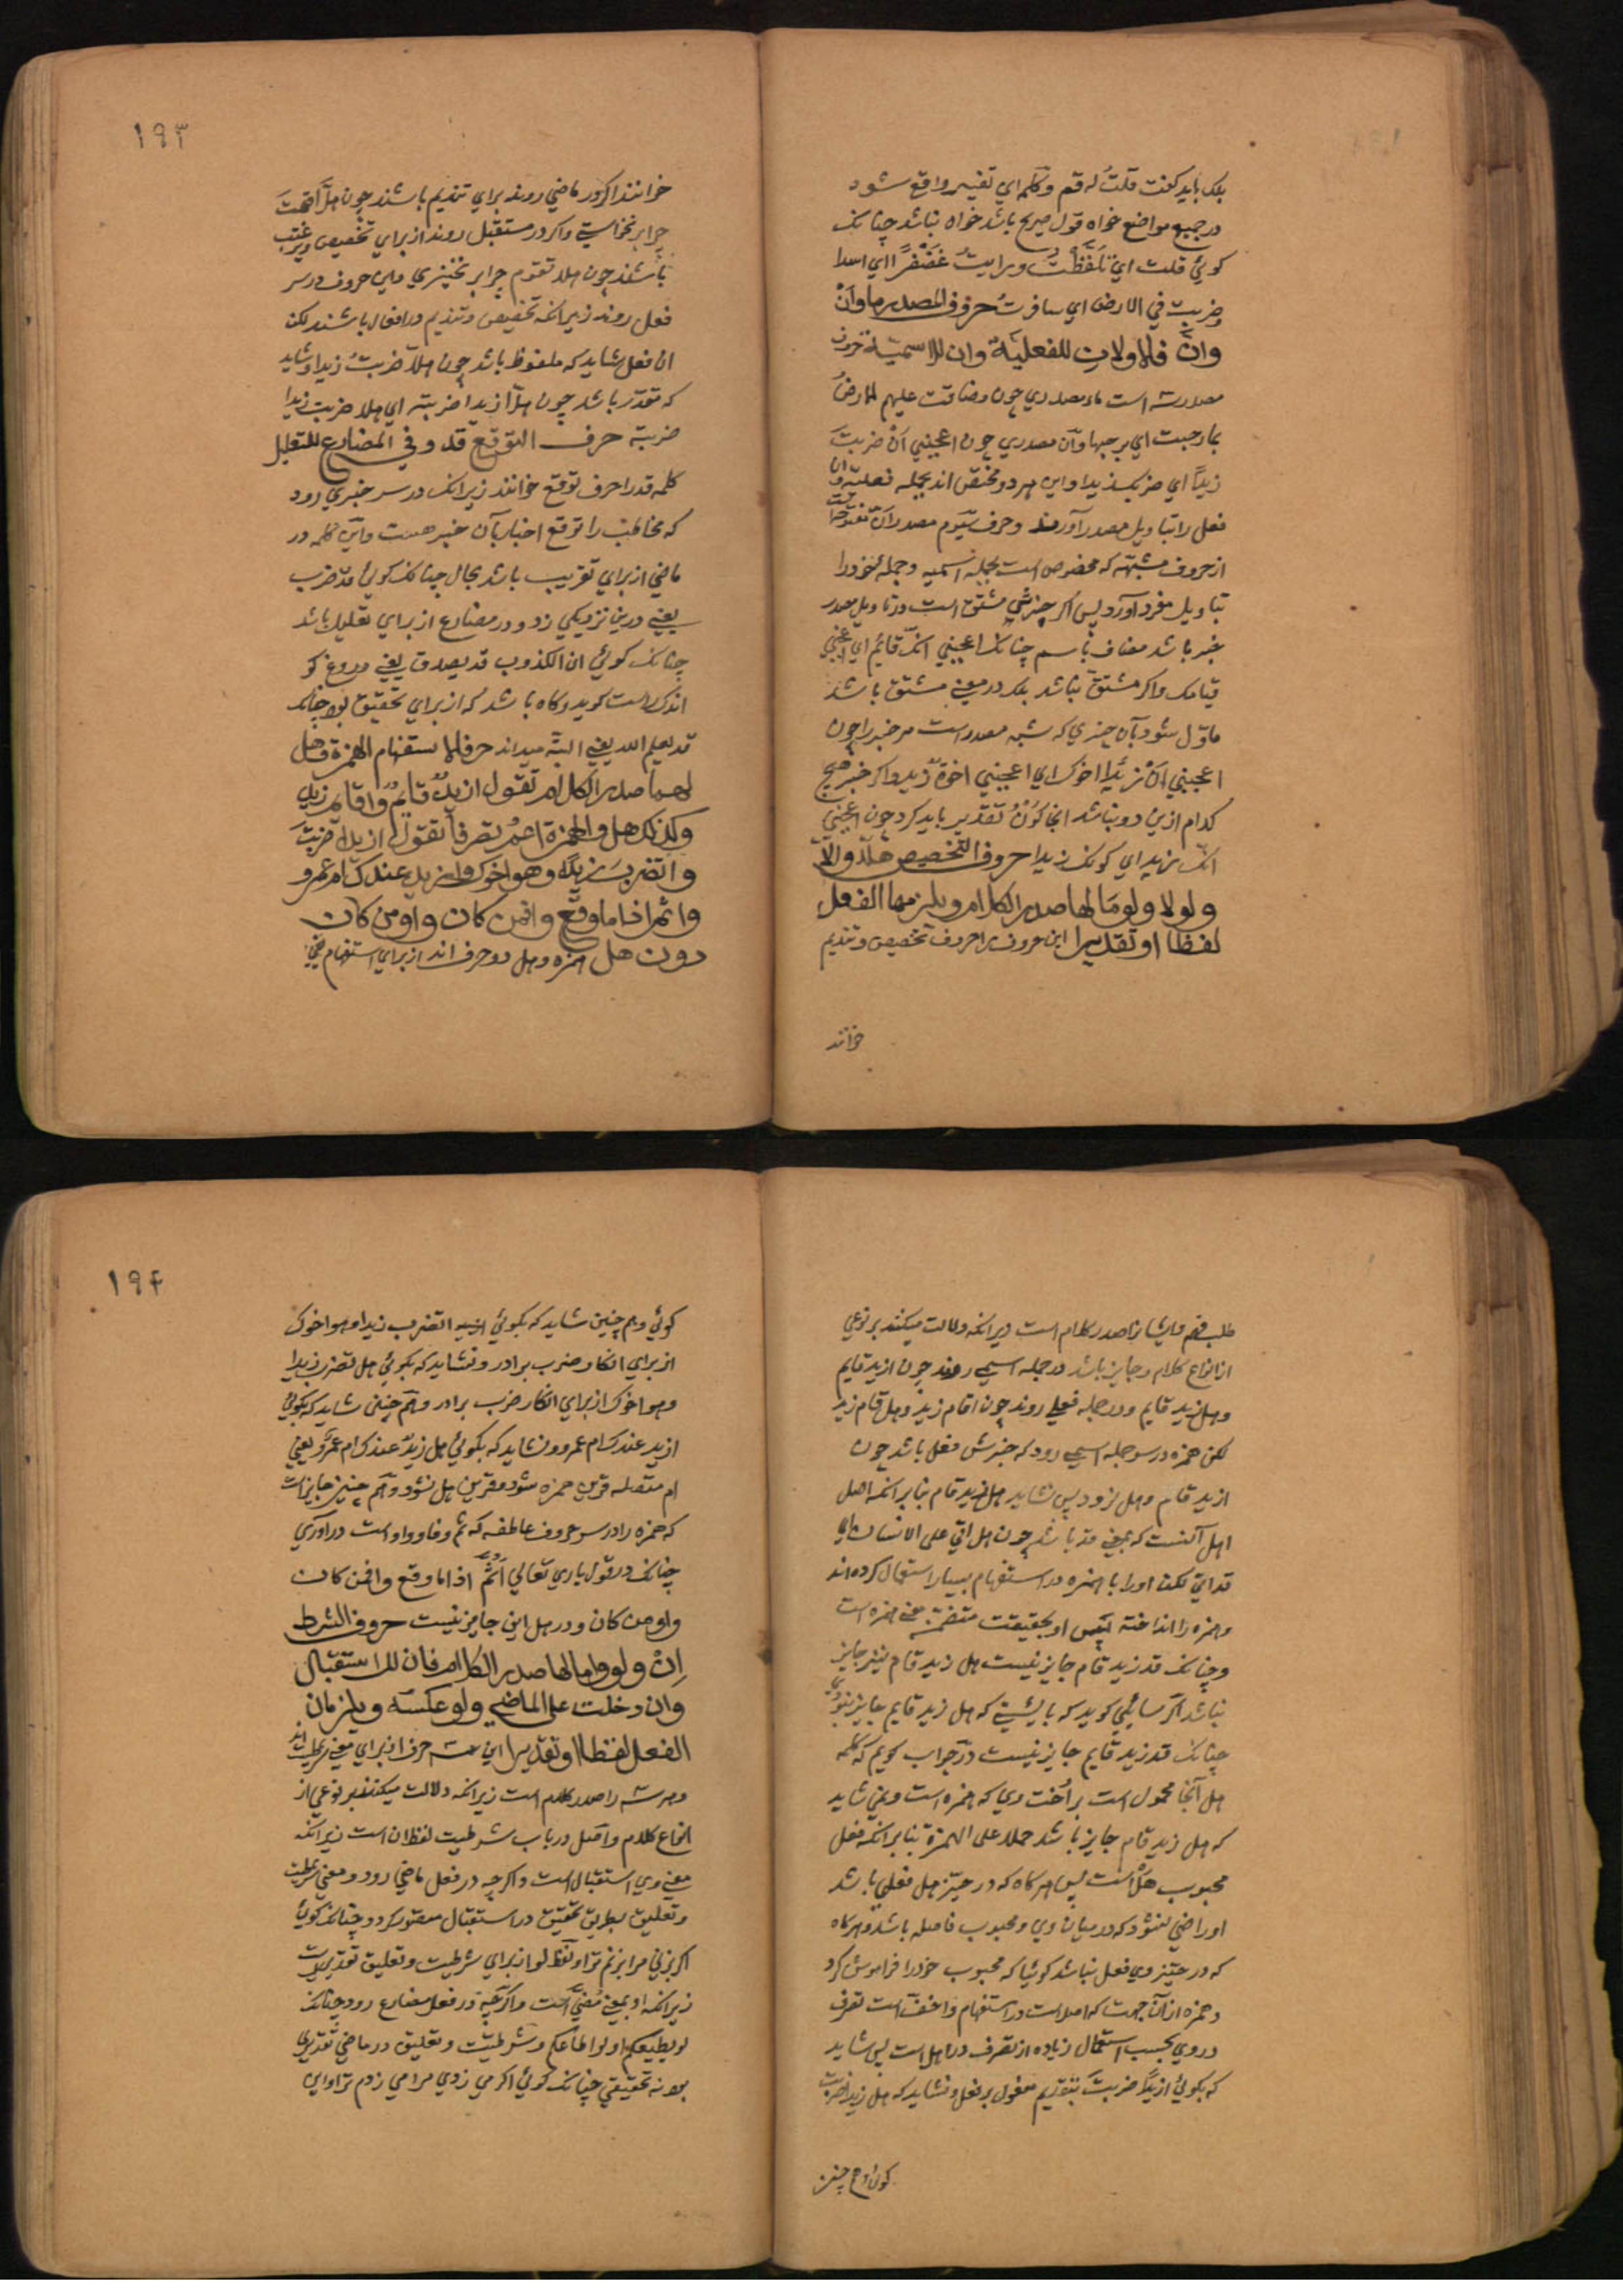 بلک باید کفت قلت له قم و کلمه ای تفسیر واقع شود
در جمیع مواضع خواه قول صریح باشد خواه نباشد چنانک
کوئی قلت ای تَلَفَّظْتُ و رایتُ غَضَنْفَرًا ای اسدا
وضربت فی الارض ای سافرتُ حروف المصدر ما وأنْ
وأنَّ فالاولان للفعلیة وان للاسمیة حروف
مصدر سه است ماء مصدری چون وضاقت علیهم الارضُ
بما رحبت ای برحبها وأن مصدری چون اعجبنی أنْ ضربتَ
زیدًا ای ضربک زیدا و این هر دو مختص اند بجمله فعلیه و ان
فعل را بتاویل مصدر آورند وحرف سیوم مصدر أنّ مفتوحه است
از حروف مشبهه که مخصوص است بجمله اسمیه و جمله خود را
بتاویل مفرد آورد پس اکر خبرش مشتق است در تاویل مصدر
خبر باشد مضاف باسم چنانک اعجبنی انک قائم ای اعجبنی
قیامک و اکر مشتق نباشد بلک در معنی مشتق باشد
ماوّل شود بآن چیزی که شبه مصدر است مر خبر را چون
اعجبنی أنّ زیدًا اخوک ای اعجبنی اخوة زید و اکر خبر هیچ
کدام ازین دو نباشد انجا کَوْنُ تقدیر باید کرد چون اعجبنی
انک زید ای کونک زیدا حروف التخصیص هلّا و الّا
و لولا و لوما لها صدر الکلام و یلزمها الفعل
لفظا او تقدیرا این حروف را حروف تخصیص و تندیم
خوانند
۱۹۳
خوانند اکر در ماضی روند برای تندیم باشند چون هلّا قمتَ
چرا برنخواستی و اکر در مستقبل روند از برای تخصیص و ترغیب
باشند چون هلا تقوم چرا برنخیزی و این حروف در سر
فعل روند زیرانکه تخصیص و تندیم در افعال باشند لکن
ان فعل شاید که ملفوظ باشد چون هلّا ضربتُ زیدا و شاید
که مقدّر باشد چون هلّا زیدا ضربته ای هلا ضربت زیدا
ضربته حرف التوقع قد و فی المضارع للتقلیل
کلمه قد را حرف توقع خوانند زیرانک در سر خبری رود
که مخاطب را توقع اخبار بآن خبر هست و این کلمه در
ماضی از برای تقریب باشد بحال چنانک کوئی قد ضرب
یعنی درین نزدیکی زد و در مضارع از برای تقلیل باشد
چنانک کوئی ان الکذوب قد یصدق یعنی دروغ کو
اندک راست کوید و کاه باشد که از برای تحقیق بود چنانک
قد یعلم الله یعنی البتّه میداند حرفا الاستفهام الهمزة و هل
لهما صدر الکلام تقول ازیدٌ قایمٌ و اقام زید
و کذلک هل و الهمزة اعمُّ تصرفا تقول ازیدا ضربتَ
و اتضربُ زیدًا و هو اخوک و ازید عندک ام عمرو
و اثم اذا ما وقع و افمن کان و اومن کان
دون هل همزه و هل دو حرف اند از برای استفهام یعنی
طلب فهم و ایشانرا صدر کلام است زیرانکه دلالت میکنند بر نوعی
از انواع کلام و جایز باشد در جمله اسمی روند چون ازید قایم
و هل زید قایم و در جمله فعلی روند چون اقام زید و هل قام زید
لکن همزه در سر جمله اسمی رود که خبرش فعل باشد چون
ازید قام و هل نرود پس نشاید هل زید قام بنابر انکه اصل
اهل آنست که بمعنی قد باشد چون هل اتی علی الانسان ای
قد اتی لکن او را با همزه در استفهام بسیار استعمال کرده اند
و همزه را انداخته پس او بحقیقت متضمن معنی همزه است
و چنانک قد زید قام جایز نیست هل زید قام نیز جایز
نباشد اکر سایلی کوید که بایستی که هل زید قایم جایز نبودی
چنانک قد زید قایم جایز نیست در جواب کویم که کلمه
هل آنجا محمول است بر اُخت وی که همزه است و نمی شاید
که هل زید قام جایز باشد حملا علی الهمزة بنابر انکه فعل
محبوب هل است پس هر کاه که در حیّز هل فعلی باشد
او راضی نشود که در میان وی و محبوب فاصله باشد و هر کاه
که در حیّز وی فعل نباشد کوئیا که محبوب خود را فراموش کرد
و همزه از آن جهت که اصلست در استفهام و اخفّ است تصرف
در وی بحسب استعمال زیاده از تصرف در هل است پس شاید
که بکوئی ازیدًا ضربتَ بتقدیم مفعول بر فعل و نشاید که هل زیدا ضربت
کوئی و هم چنین
۱۹۴
کوئی و هم چنین شاید که بکوئی اتضرب زیدا و هو اخوک
از برای انکار ضرب برادر و نشاید که بکوئی هل تضرب زیدا
و هو اخوک از برای انکار ضرب برادر و هم چنین شاید که بکوئی
ازید عندک ام عمرو و نشاید که بکوئی هل زیدٌ عندک ام عمرٌو یعنی
ام متصله قرین همزه شود و قرین هل نشود و هم چنین جایز است
که همزه را در سر حروف عاطفه که ثم و فا و واو است در آوری
چنانک در قول باری تعالی أثمّ اذا ما وقع و افمن کان
و اومن کان و در هل این جایز نیست حروف الشرط
إن و لو و اما لها صدر الکلام فان للاستقبال
و ان دخلت علی الماضی و لو عکسه و یلزمان
الفعل لفظا او تقدیرا این سه حرف از برای معنی شرطیت اند
و هر سه را صدر کلام است زیرانکه دلالت میکنند بر نوعی از
انواع کلام و اصل در باب شرطیت لفظ ان است زیرانکه
معنی وی استقبال است و اکر چه در فعل ماضی رود و معنی شرطیت
و تعلیق بطریق تحقیق در استقبال متصور کردد چنانک کوئی
اکر بزنی مرا بزنم ترا و لفظ لو از برای شرطیت و تعلیق تقدیریست
زیرانکه او بمعنی مُضیّ است و اکر چه در فعل مضارع رود چنانک
لو یطیعکم او لو اطاعکم و شرطیّت و تعلیق در ماضی تقدیری
بود نه تحقیقی چنانک کوئی اکر می زدی مرا می زدم ترا و این